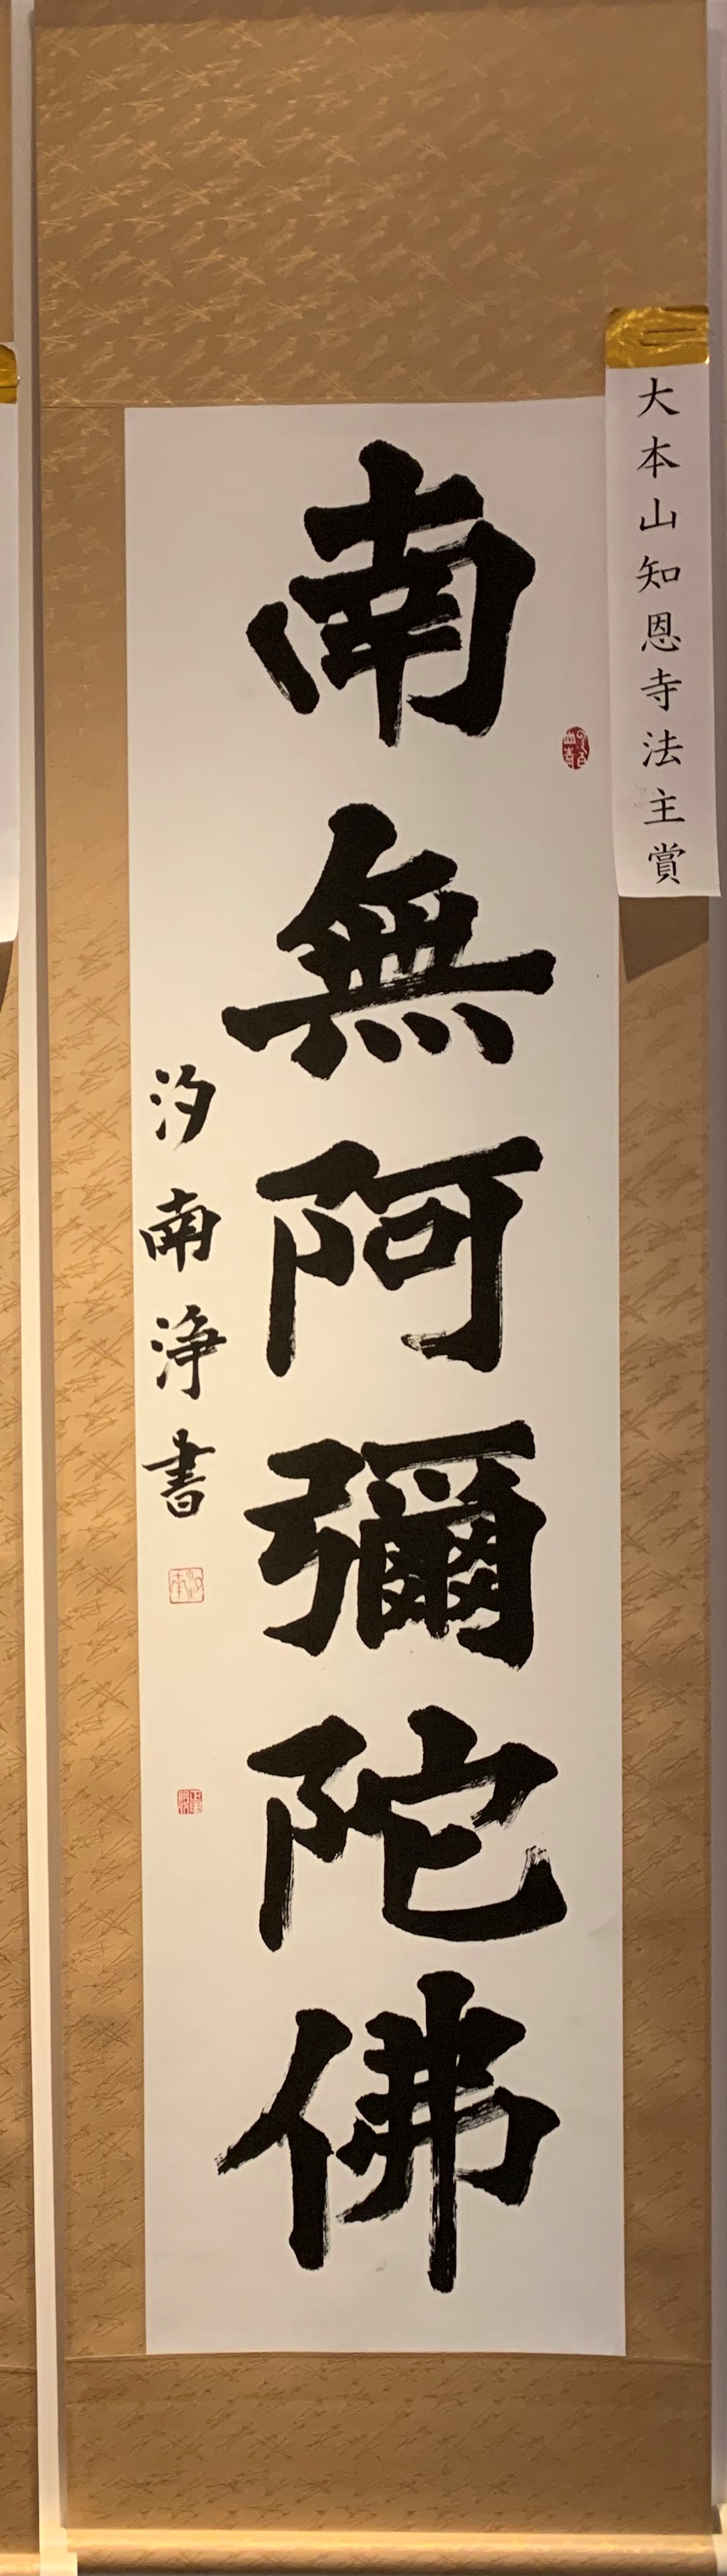 大本山知恩寺法主賞
南無阿彌陀佛
汐南浄書
汐南